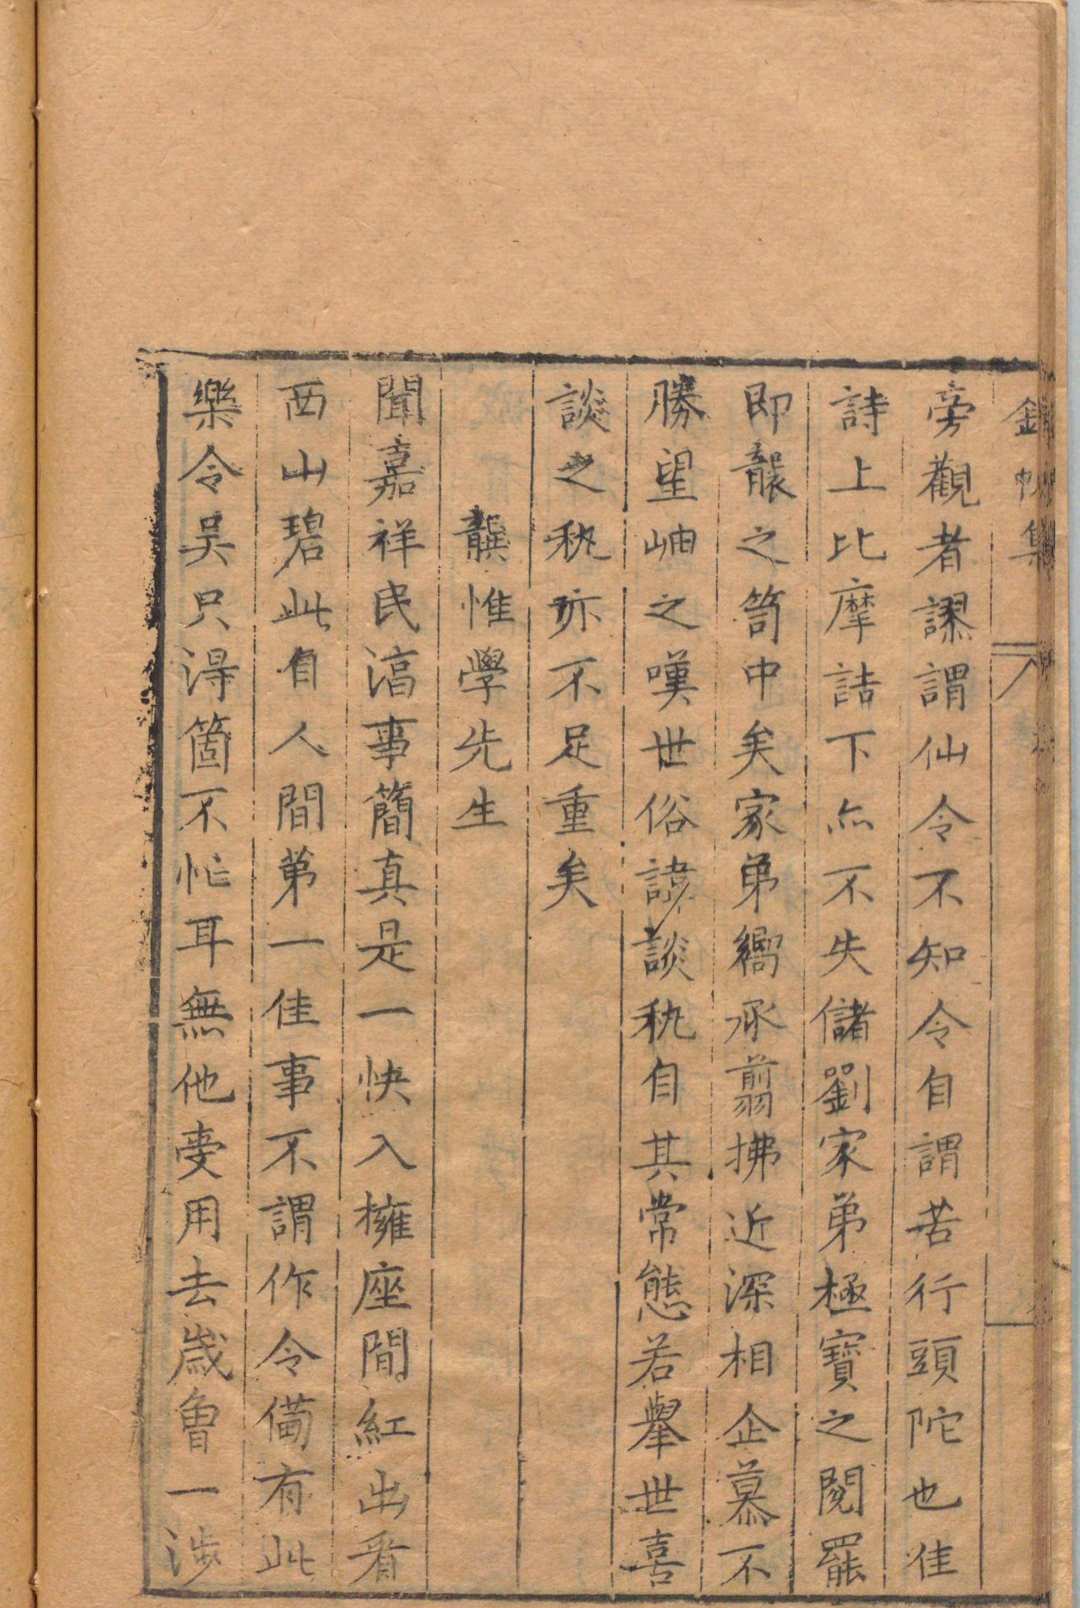 旁觀者謬謂仙令不知令自謂苦行頭陀也佳
詩上比摩詰下亦不失儲劉家弟極寶之閱罷
即襲之笥中矣家弟嚮承翦拂近深相企慕不
勝望岫之嘆世俗諱談秇自其常態若舉世喜
談之秇亦不足重矣
龔惟學先生
聞嘉祥民淳事簡真是一快入擁座間紅出看
西山碧此自人間第一佳事不謂作令備有此
樂令吳只得箇不忙耳無他受用去歲曾一涉
集